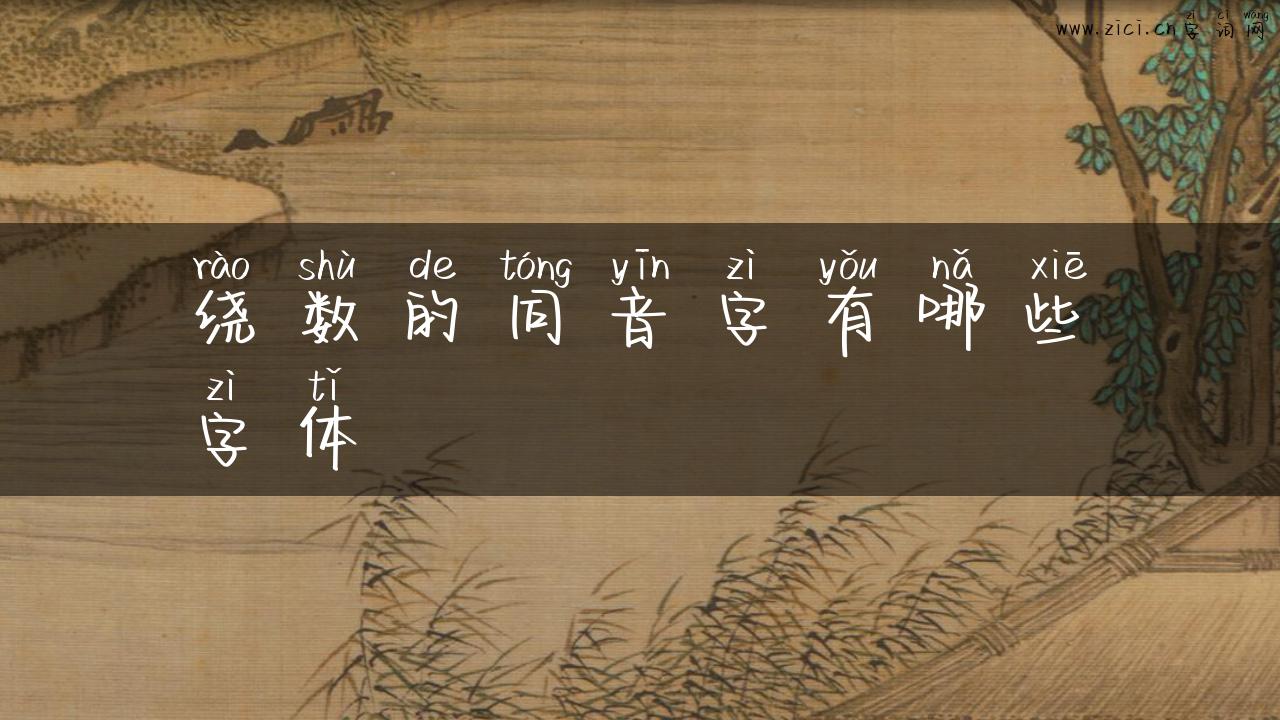 zì cí wǎng
www.zici.cn字词网
rào shù de tóng yīn zì yǒu nǎ xiē
绕数的同音字有哪些
zì tǐ
字体